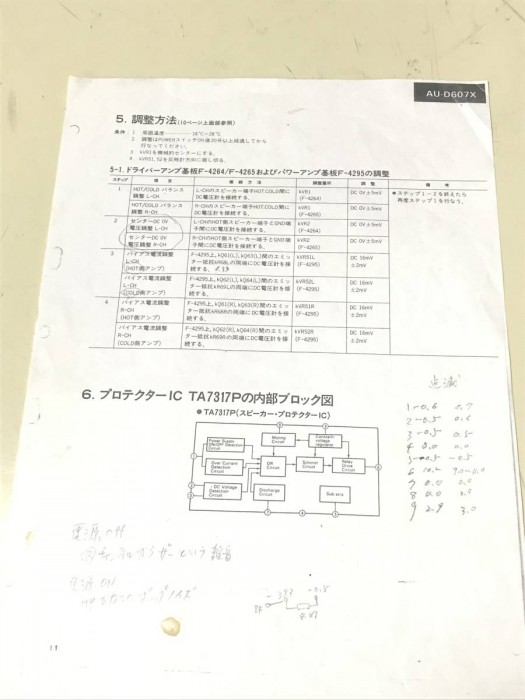 AU-D607X
5. 調整方法(10ページ上面部参照)
条件: 1. 周囲温度 18℃~28℃
2. 調整はPOWERスイッチON後20分以上経過してから
行なってください。
3. kVR1を機械的センターにする。
4. kVR51, 52を反時計方向に廻し切る。
5-1. ドライバーアンプ基板F-4264/F-4265およびパワーアンプ基板F-4295の調整
ステップ 項目 接続方法 調整箇所 調整 備考
1 HOT/COLD バランス調整 L-CH L-CHのスピーカー端子HOT, COLD間にDC電圧計を接続する。 kVR1 (F-4264) DC 0V±5mV ●ステップ1~2を終えたら再度ステップ1を行なう。
HOT/COLD バランス調整 R-CH R-CHのスピーカー端子HOT, COLD間にDC電圧計を接続する。 kVR1 (F-4265) DC 0V±5mV
2 センターDC 0V電圧調整 L-CH L-CHのHOT側スピーカー端子とGND端子間にDC電圧計を接続する。 kVR2 (F-4264) DC 0V±5mV
センターDC 0V電圧調整 R-CH R-CHのHOT側スピーカー端子とGND端子間にDC電圧計を接続する。 kVR2 (F-4265) DC 0V±5mV
3 バイアス電流調整 L-CH (HOT側アンプ) F-4295上, kQ61(L), kQ63(L)間のエミッター抵抗kR68Lの両端にDC電圧計を接続する。 kVR51L (F-4295) DC 16mV ±2mV
バイアス電流調整 L-CH (COLD側アンプ) F-4295上, kQ62(L), kQ64(L)間のエミッター抵抗kR69Lの両端にDC電圧計を接続する。 kVR52L (F-4295) DC 16mV ±2mV
4 バイアス電流調整 R-CH (HOT側アンプ) F-4295上, kQ61(R), kQ63(R)間のエミッター抵抗kR68Rの両端にDC電圧計を接続する。 kVR51R (F-4295) DC 16mV ±2mV
バイアス電流調整 R-CH (COLD側アンプ) F-4295上, kQ62(R), kQ64(R)間のエミッター抵抗kR69Rの両端にDC電圧計を接続する。 kVR52R (F-4295) DC 16mV ±2mV
6. プロテクターIC TA7317Pの内部ブロック図
● TA7317P(スピーカー・プロテクターIC)
Power Supply ON/OFF Detection Circuit
Muting Circuit
Constant-voltage regulator
Over Current Detection Circuit
OR Circuit
Schmitt Circuit
Relay Drive Circuit
- DC Voltage Detection Circuit
Discharge Circuit
Sub stra
点滅
1 -0.6 0.7
2 -0.5 0.6
3 -0.5 0.5
4 0.0 0.0
5 -0.5 -0.5
7 0.0 0.0
9 2.9 3.0
電源 ON